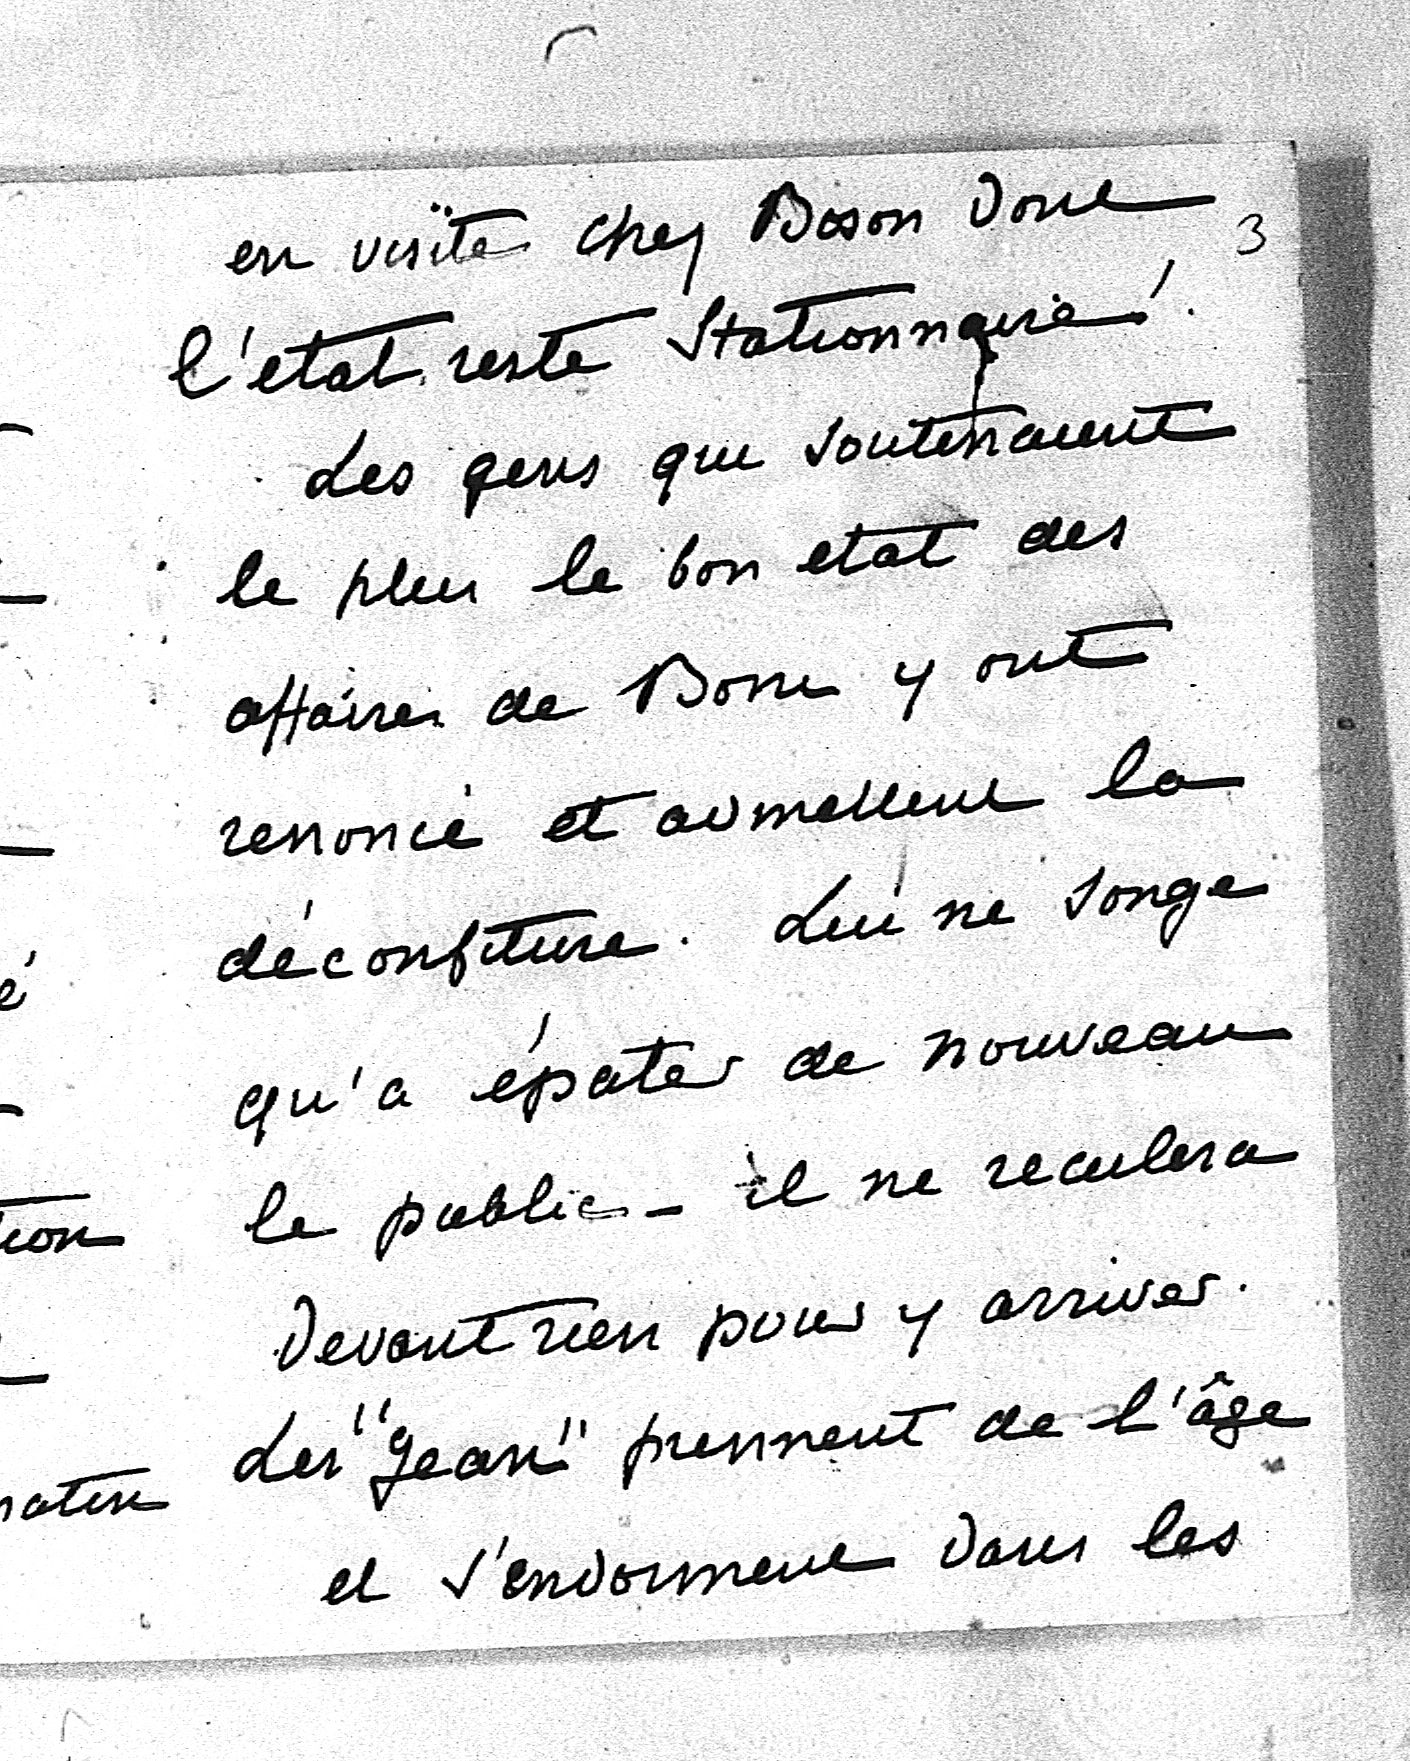 en visite chez Boson dont
3
l'etat reste stationnaire.
Les gens qui soutenaient
le plus le bon etat des
affaires de Boni y ont
renoncé et admettent la
déconfiture. Lui ne songe
qu'a épater de nouveau
le public - il ne reculera
devant rien pour y arriver.
Les "Jean" prennent de l'âge
et s'endorment dans les
é
tion